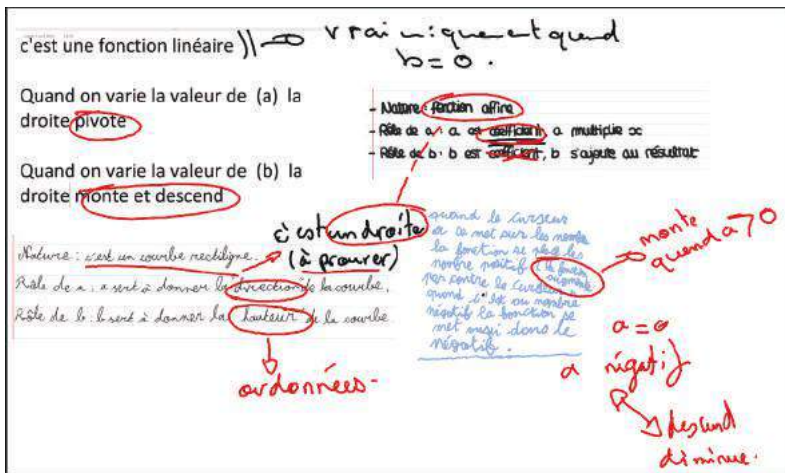 c'est une fonction linéaire
vrai uniquement quand
b = 0.
Quand on varie la valeur de (a) la
droite pivote
Quand on varie la valeur de (b) la
droite monte et descend
- Nature : fonction affine
- Rôle de a : a est coefficient, a multiplie x
- Rôle de b : b est coefficient, b s'ajoute au résultat
c'est un droite
(à prouver)
Nature : c'est un courbe rectiligne.
Rôle de a : a sert à donner la direction de la courbe.
Rôle de b : b sert à donner la hauteur de la courbe
ordonnées
quand le curseur
a ce met sur les
la fonction se place les
nombre positif
par contre le curseur
quand il est au nombre
négatif la fonction se
met aussi dans le
négatif.
monte
quand a > 0
a = 0
a négatif
descend
diminue.